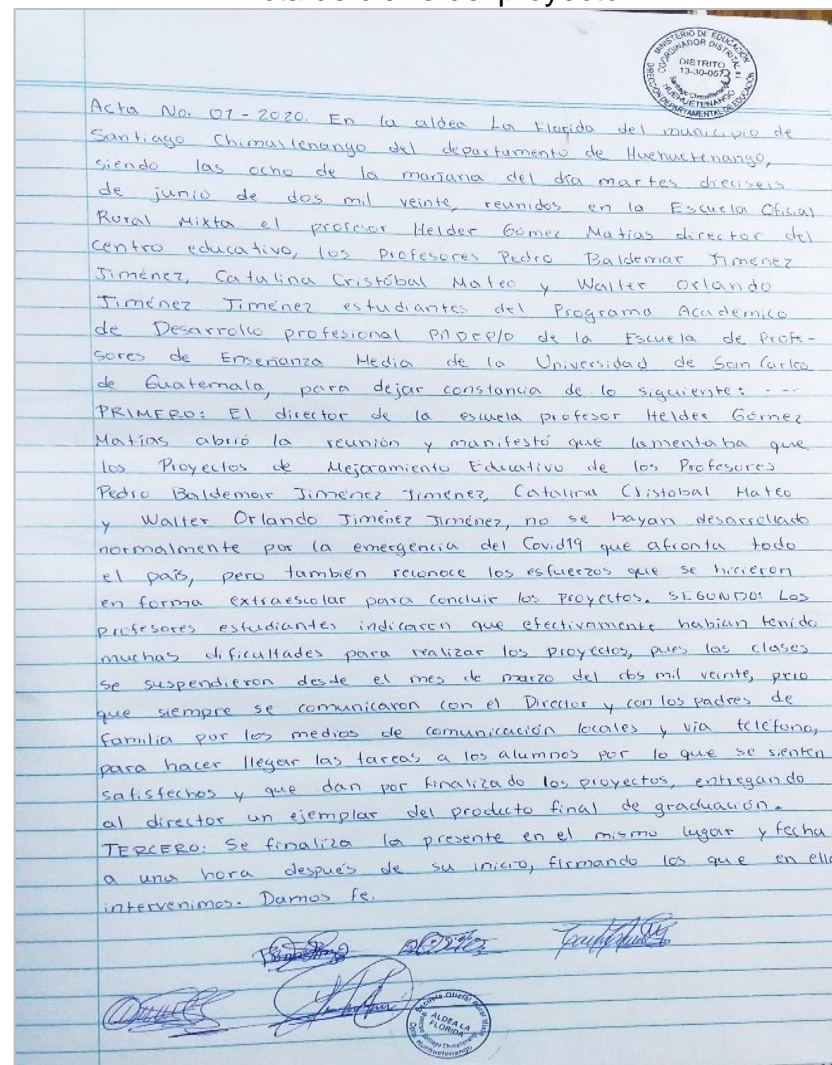 MINISTERIO DE EDUCACIÓN
COORDINADOR DISTRITAL
DISTRITO
13-30-057
HUEHUETENANGO
DIRECCIÓN DEPARTAMENTAL DE EDUCACIÓN
Acta No. 01-2020. En la aldea La Florida del municipio de
Santiago Chimaltenango del departamento de Huehuetenango,
siendo las ocho de la mañana del día martes dieciseis
de junio de dos mil veinte, reunidos en la Escuela Oficial
Rural Mixta el profesor Helder Gómez Matías director del
centro educativo, los Profesores Pedro Baldemar Jimenez
Jiménez, Catalina Cristóbal Mateo y Walter Orlando
Jiménez Jiménez estudiantes del Programa Academico
de Desarrollo profesional PADEP/D de la Escuela de Profe-
sores de Enseñanza Media de la Universidad de San Carlos
de Guatemala, para dejar constancia de lo siguiente: ---
PRIMERO: El director de la escuela profesor Helder Gómez
Matías abrió la reunión y manifestó que lamentaba que
los Proyectos de Mejoramiento Educativo de los Profesores
Pedro Baldemar Jiménez Jiménez, Catalina Cristobal Mateo
y Walter Orlando Jiménez Jiménez, no se hayan desarrollado
normalmente por la emergencia del Covid19 que afronta todo
el país, pero también reconoce los esfuerzos que se hicieron
en forma extraescolar para concluir los proyectos. SEGUNDO: Los
profesores estudiantes indicaron que efectivamente habian tenido
muchas dificultades para realizar los proyectos, pues las clases
se suspendieron desde el mes de marzo del dos mil veinte, pero
que siempre se comunicaron con el Director y con los padres de
familia por los medios de comunicación locales y via teléfono,
para hacer llegar las tareas a los alumnos por lo que se sienten
satisfechos y que dan por finalizado los proyectos, entregando
al director un ejemplar del producto final de graduación.
TERCERO: Se finaliza la presente en el mismo lugar y fecha
a una hora después de su inicio, firmando los que en ella
intervenimos. Damos fe.
Escuela Oficial Rural Mixta
ALDEA LA
FLORIDA
Huehuetenango